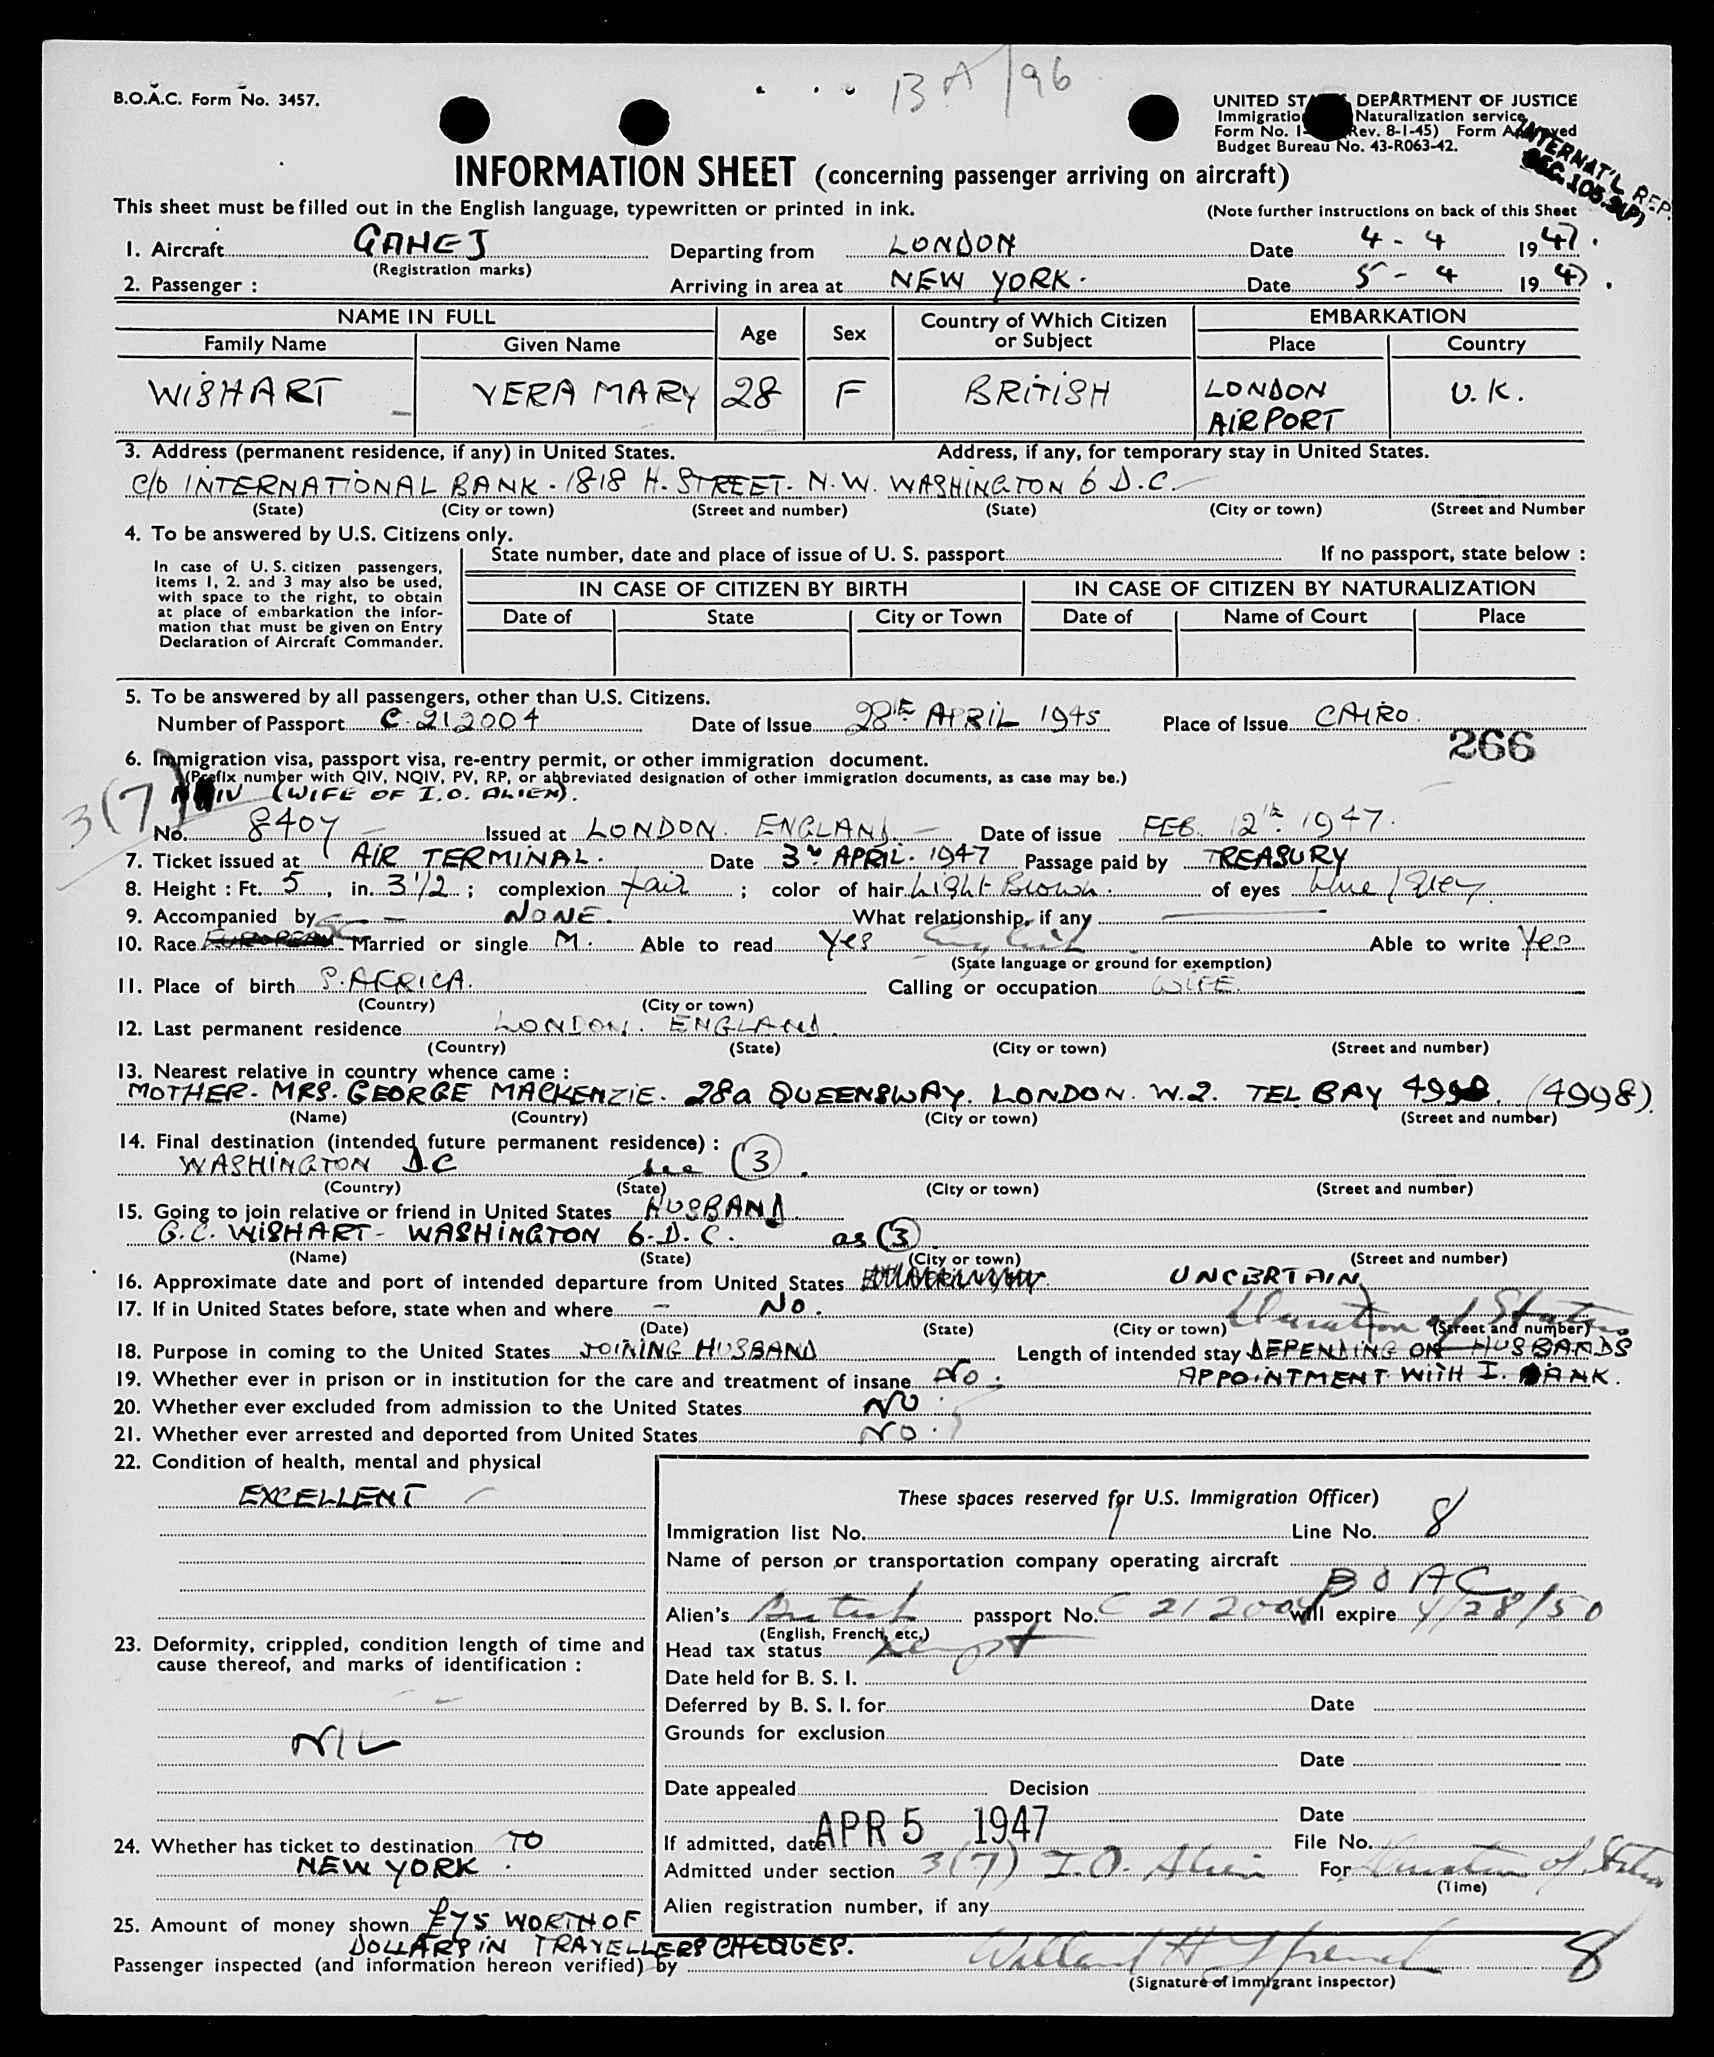 B A / 96
B.O.A.C. Form No. 3457.
UNITED STATES DEPARTMENT OF JUSTICE
Immigration Naturalization service
Form No. I- (Rev. 8-1-45) Form Approved
Budget Bureau No. 43-R063-42.
INTERNAT'L REP.
SEC. 105.3(P)
INFORMATION SHEET (concerning passenger arriving on aircraft)
This sheet must be filled out in the English language, typewritten or printed in ink. (Note further instructions on back of this Sheet
1. Aircraft GAHEJ Departing from LONDON Date 4 - 4 1947.
(Registration marks)
2. Passenger : Arriving in area at NEW YORK. Date 5 - 4 1947.
NAME IN FULL Age Sex Country of Which Citizen or Subject EMBARKATION
Family Name Given Name Place Country
WISHART VERA MARY 28 F BRITISH LONDON AIRPORT U.K.
3. Address (permanent residence, if any) in United States. Address, if any, for temporary stay in United States.
C/O INTERNATIONAL BANK - 1818 H. STREET. N.W. WASHINGTON 6 D.C.
(State) (City or town) (Street and number) (State) (City or town) (Street and Number
4. To be answered by U.S. Citizens only.
State number, date and place of issue of U. S. passport If no passport, state below :
In case of U. S. citizen passengers,
items 1, 2. and 3 may also be used,
with space to the right, to obtain
at place of embarkation the infor-
mation that must be given on Entry
Declaration of Aircraft Commander.
IN CASE OF CITIZEN BY BIRTH IN CASE OF CITIZEN BY NATURALIZATION
Date of State City or Town Date of Name of Court Place
5. To be answered by all passengers, other than U.S. Citizens.
Number of Passport C. 212004 Date of Issue 28TH APRIL 1945 Place of Issue CAIRO.
266
6. Immigration visa, passport visa, re-entry permit, or other immigration document.
(Prefix number with QIV, NQIV, PV, RP, or abbreviated designation of other immigration documents, as case may be.)
3(7) NQIV (WIFE OF I.O. ALIEN).
No. 8407 Issued at LONDON. ENGLAND. Date of issue FEB. 12th. 1947.
7. Ticket issued at AIR TERMINAL. Date 3rd APRIL. 1947 Passage paid by TREASURY
8. Height : Ft. 5, in. 3 1/2 ; complexion fair ; color of hair Light Brown. of eyes blue / Grey.
9. Accompanied by NONE. What relationship, if any
10. Race EUROPEAN Married or single M. Able to read Yes English Able to write Yes
(State language or ground for exemption)
11. Place of birth S. AFRICA. Calling or occupation WIFE.
(Country) (City or town)
12. Last permanent residence LONDON. ENGLAND.
(Country) (State) (City or town) (Street and number)
13. Nearest relative in country whence came :
MOTHER - MRS. GEORGE MACKENZIE. 28a QUEENSWAY. LONDON. W.2. TEL BAY 4998. (4998).
(Name) (Country) (City or town) (Street and number)
14. Final destination (intended future permanent residence) :
WASHINGTON D.C see (3).
(Country) (State) (City or town) (Street and number)
15. Going to join relative or friend in United States HUSBAND.
G.C. WISHART - WASHINGTON 6. D.C. as (3)
(Name) (State) (City or town) (Street and number)
16. Approximate date and port of intended departure from United States UNCERTAIN
17. If in United States before, state when and where - No.
Duration of Status
(Date) (State) (City or town) (Street and number)
18. Purpose in coming to the United States JOINING HUSBAND Length of intended stay DEPENDING ON HUSBANDS
19. Whether ever in prison or in institution for the care and treatment of insane No. APPOINTMENT WITH I. BANK.
20. Whether ever excluded from admission to the United States NO
21. Whether ever arrested and deported from United States NO.
22. Condition of health, mental and physical
EXCELLENT
These spaces reserved for U.S. Immigration Officer)
Immigration list No. 1 Line No. 8
Name of person or transportation company operating aircraft
BOAC
Alien's British passport No. C 212004 will expire 4/28/50
(English, French, etc.)
Head tax status Exempt
23. Deformity, crippled, condition length of time and
cause thereof, and marks of identification :
NIL
Date held for B. S. I.
Deferred by B. S. I. for Date
Grounds for exclusion
Date
Date appealed Decision
Date
APR 5 1947
If admitted, date File No.
Admitted under section 3(7) I.O. Alien For Duration of Status
(Time)
Alien registration number, if any
24. Whether has ticket to destination TO
NEW YORK.
25. Amount of money shown £75 WORTH OF
DOLLARS IN TRAVELLERS CHEQUES.
Passenger inspected (and information hereon verified) by Willard H 8
(Signature of immigrant inspector)